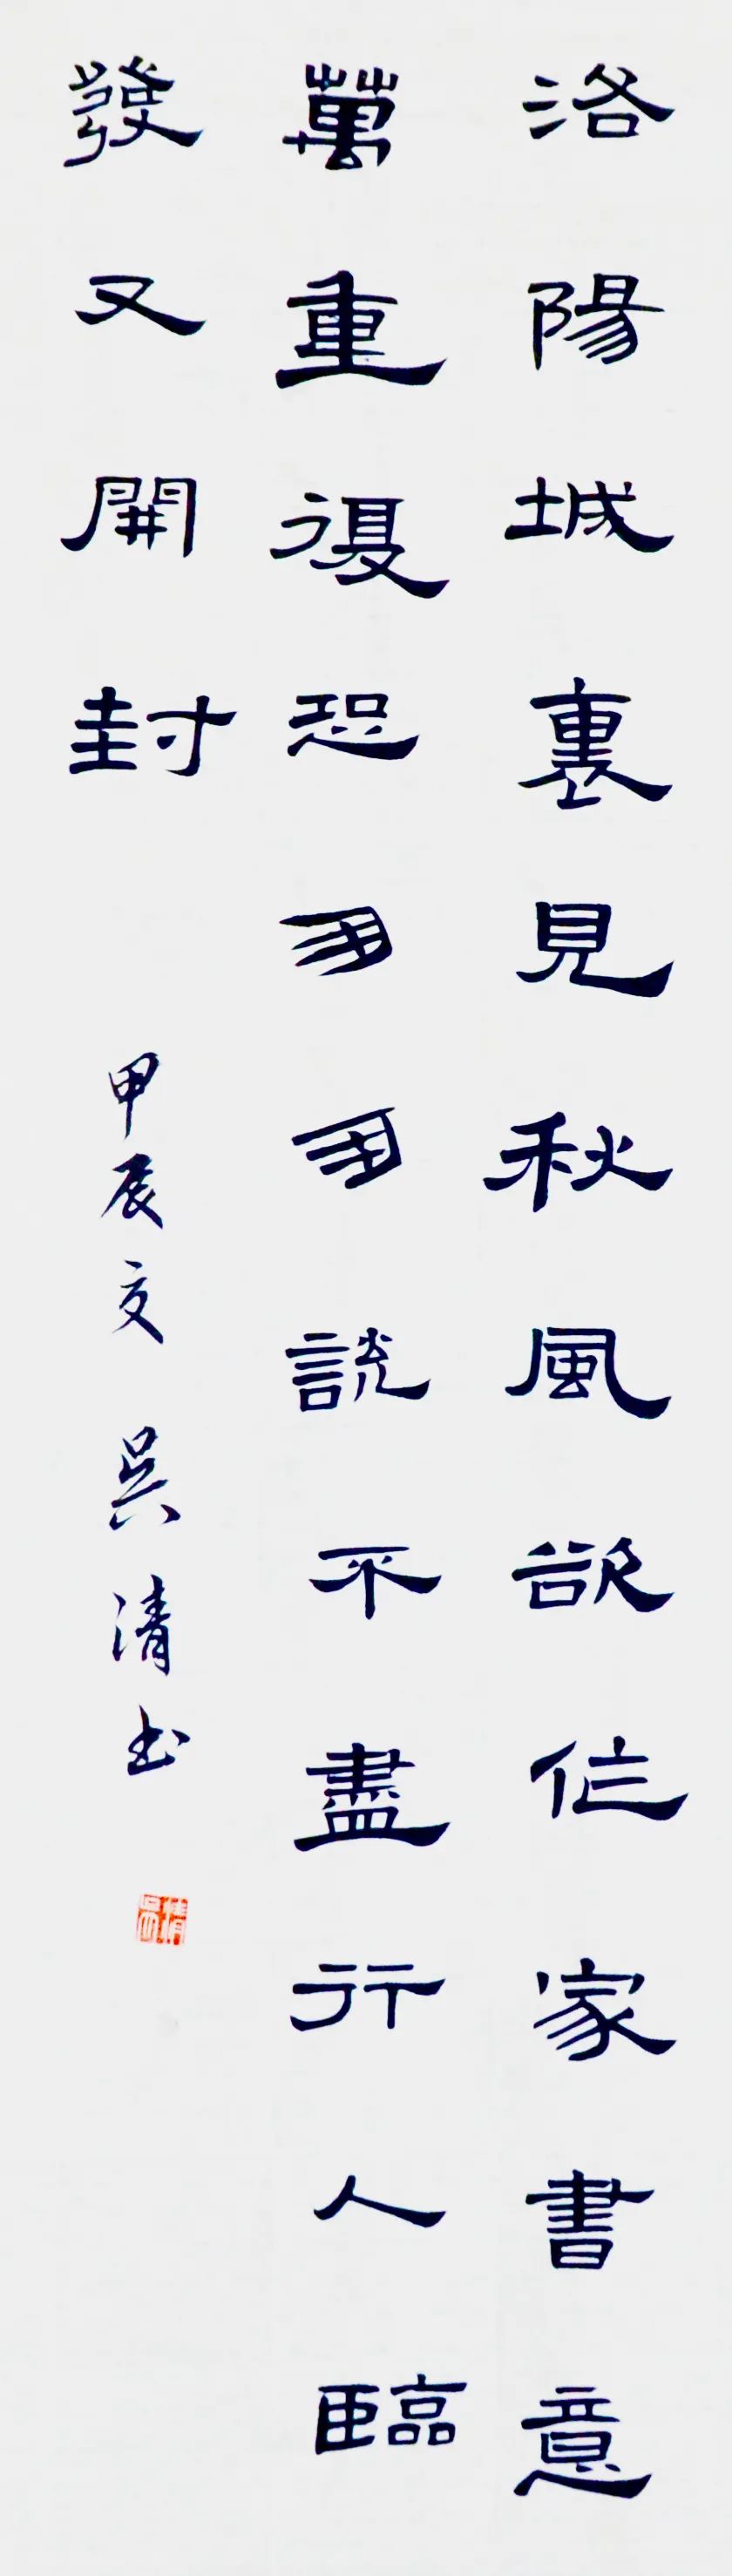 洛陽城裏見秋風欲作家書意
萬重復恐匆匆說不盡行人臨
發又開封
甲辰夏 吳清書